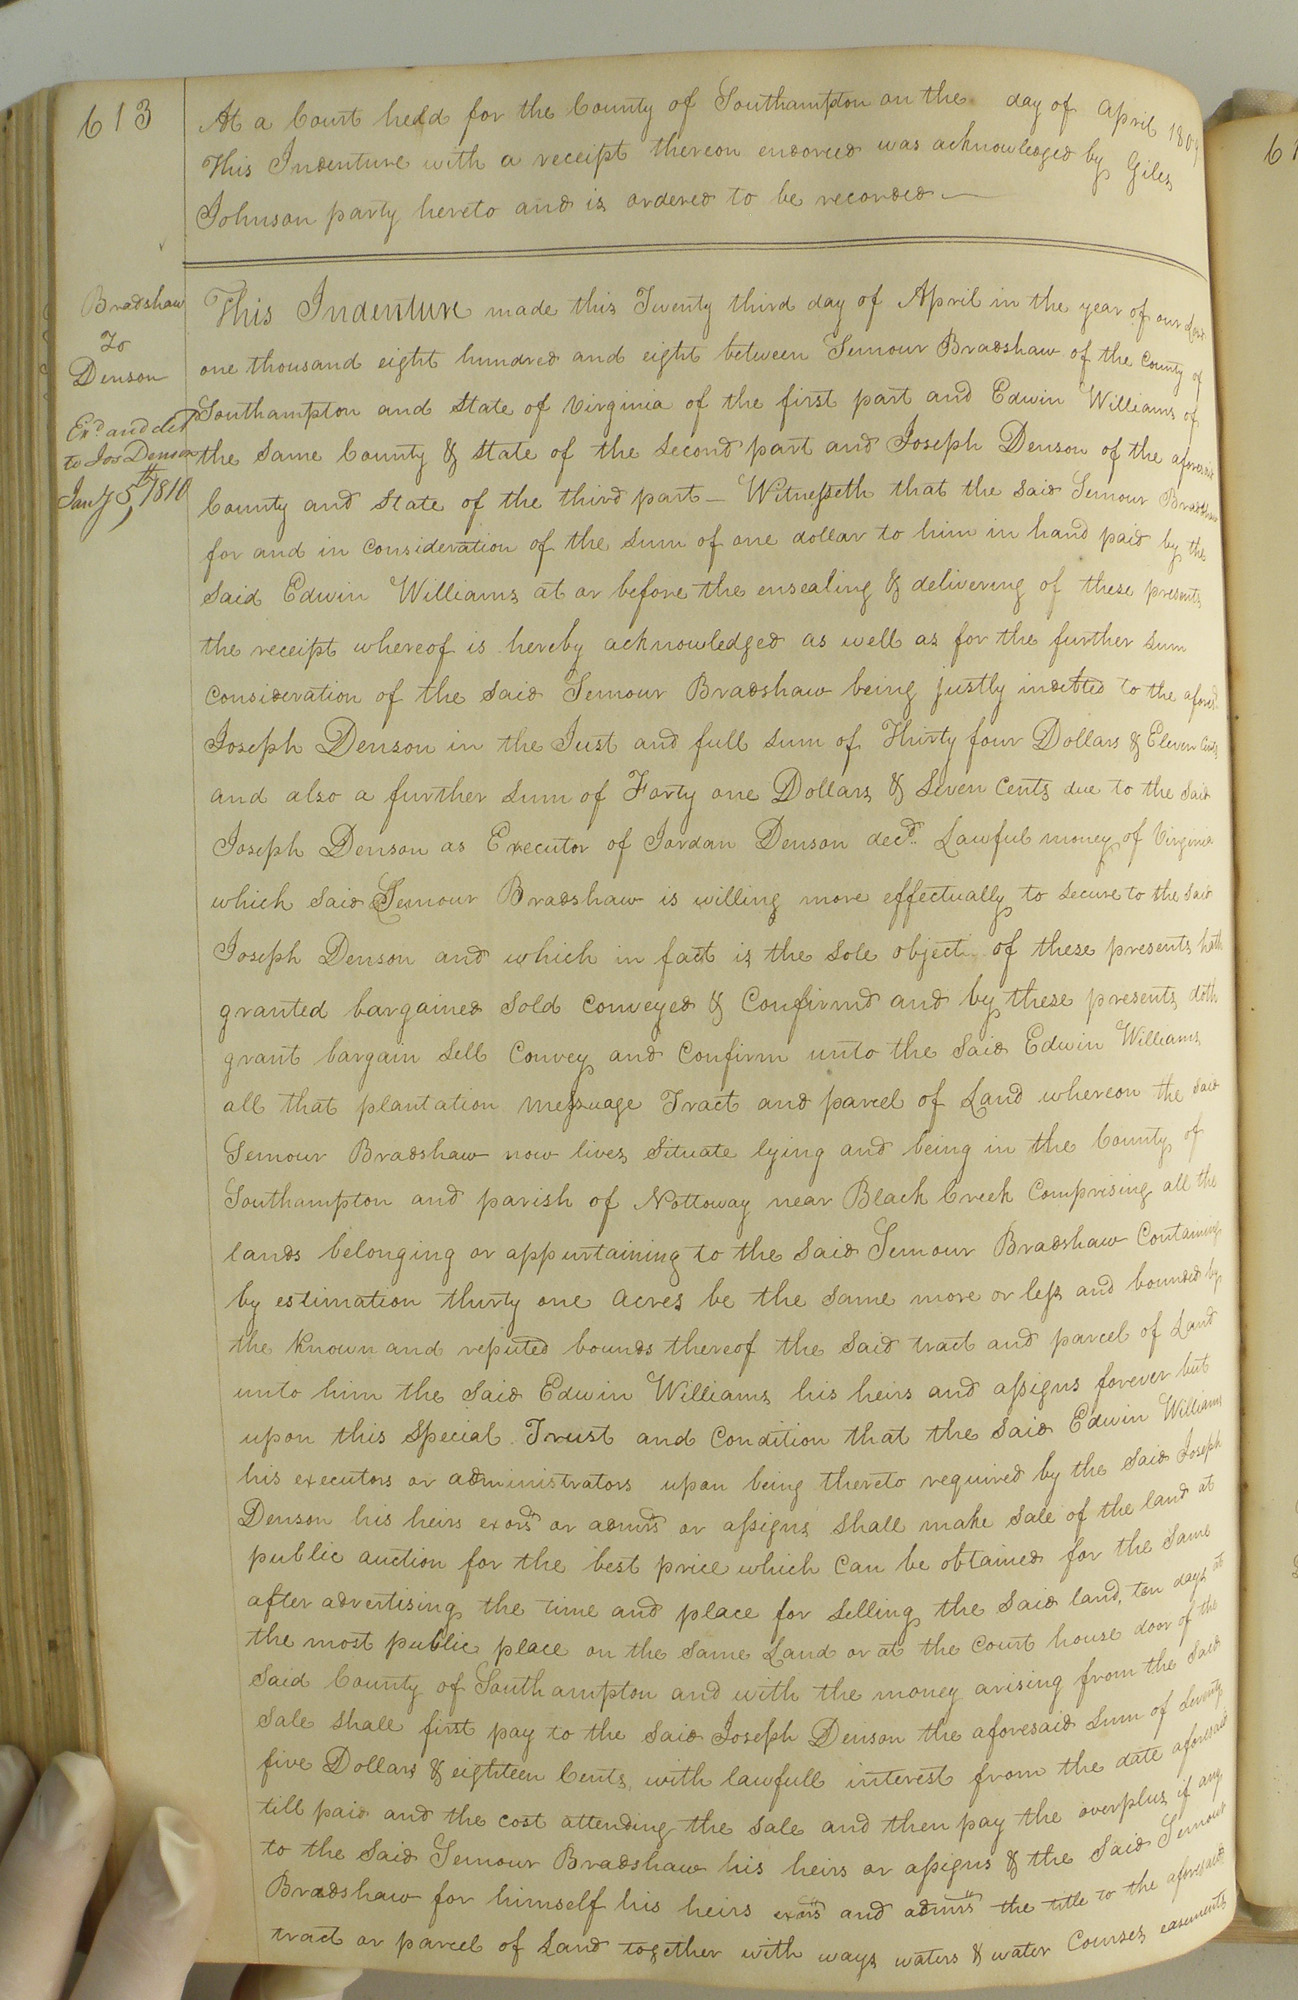 613
At a Court held for the County of Southampton on the day of April 1809
This Indenture with a receipt thereon endorced was acknowledged by Giles
Johnson party hereto and is ordered to be recorded
Bradshaw
To
Denson
Exd and deld
to Jos Denson
Jany 5th 1810
This Indenture made this Twenty third day of April in the year of our Lord
one thousand eight hundred and eight between Semour Bradshaw of the County of
Southampton and State of Virginia of the first part and Edwin Williams of
the Same County & State of the Second part and Joseph Denson of the aforesaid
County and State of the third part — Witnesseth that the said Semour Bradshaw
for and in Consideration of the Sum of one dollar to him in hand paid by the
Said Edwin Williams at or before the ensealing & delivering of these presents
the receipt whereof is hereby acknowledged as well as for the further sum
Consideration of the Said Semour Bradshaw being justly indebted to the afores.d
Joseph Denson in the Just and full sum of Thirty four Dollars & Eleven Cents
and also a further Sum of Forty one Dollars & Seven Cents due to the Said
Joseph Denson as Executor of Jordan Denson decd. Lawful money of Virginia
which said Semour Bradshaw is willing more effectually to secure to the Said
Joseph Denson and which in fact is the sole object of these presents hath
granted bargained Sold Conveyed & Confirmd and by these presents doth
grant bargain Sell Convey and Confirm unto the Said Edwin Williams
all that plantation messuage Tract and parcel of Land whereon the said
Semour Bradshaw now lives Situate lying and being in the County of
Southampton and parish of Nottoway near Black Creek Comprising all the
lands belonging or appurtaining to the Said Semour Bradshaw Containing
by estimation thirty one acres be the Same more or less and bounded by
the known and reputed bounds thereof the Said tract and parcel of Land
unto him the Said Edwin Williams his heirs and assigns forever but
upon this Special Trust and Condition that the Said Edwin Williams
his executors or administrators upon being thereto required by the Said Joseph
Denson his heirs exors or admrs or assigns shall make Sale of the land at
public auction for the best price which Can be obtained for the Same
after advertising the time and place for Selling the Said land, ten days at
the most public place on the same Land or at the Court house door of the
Said County of Southampton and with the money arising from the Said
Sale shall first pay to the Said Joseph Denson the aforesaid Sum of Seventy
five Dollars & eighteen Cents with lawfull interest from the date aforesaid
till paid and the cost attending the Sale and then pay the overplus if any
to the Said Semour Bradshaw his heirs or assigns & the Said Semour
Bradshaw for himself his heirs exors and admrs the title to the aforesaid
tract or parcel of Land together with ways waters & water Courses easements